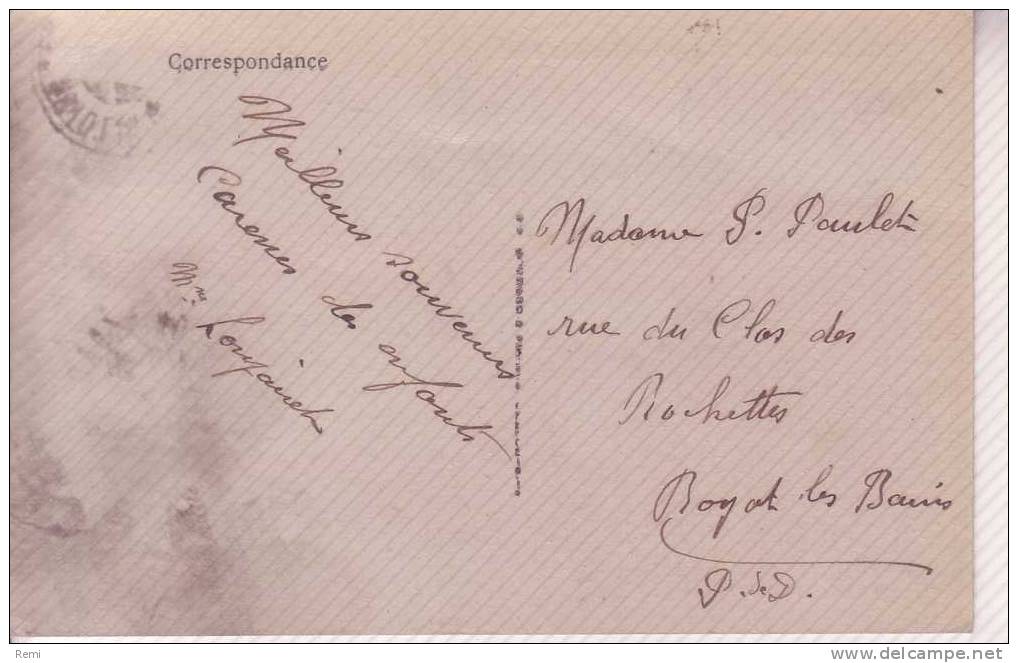 Correspondance
Meilleurs souvenirs
Caresses des enfants
Mme
Madame P. Paulet
rue du Clos des
Rochettes
Royat les Bains
P. de D.
Remi
www.delcampe.net